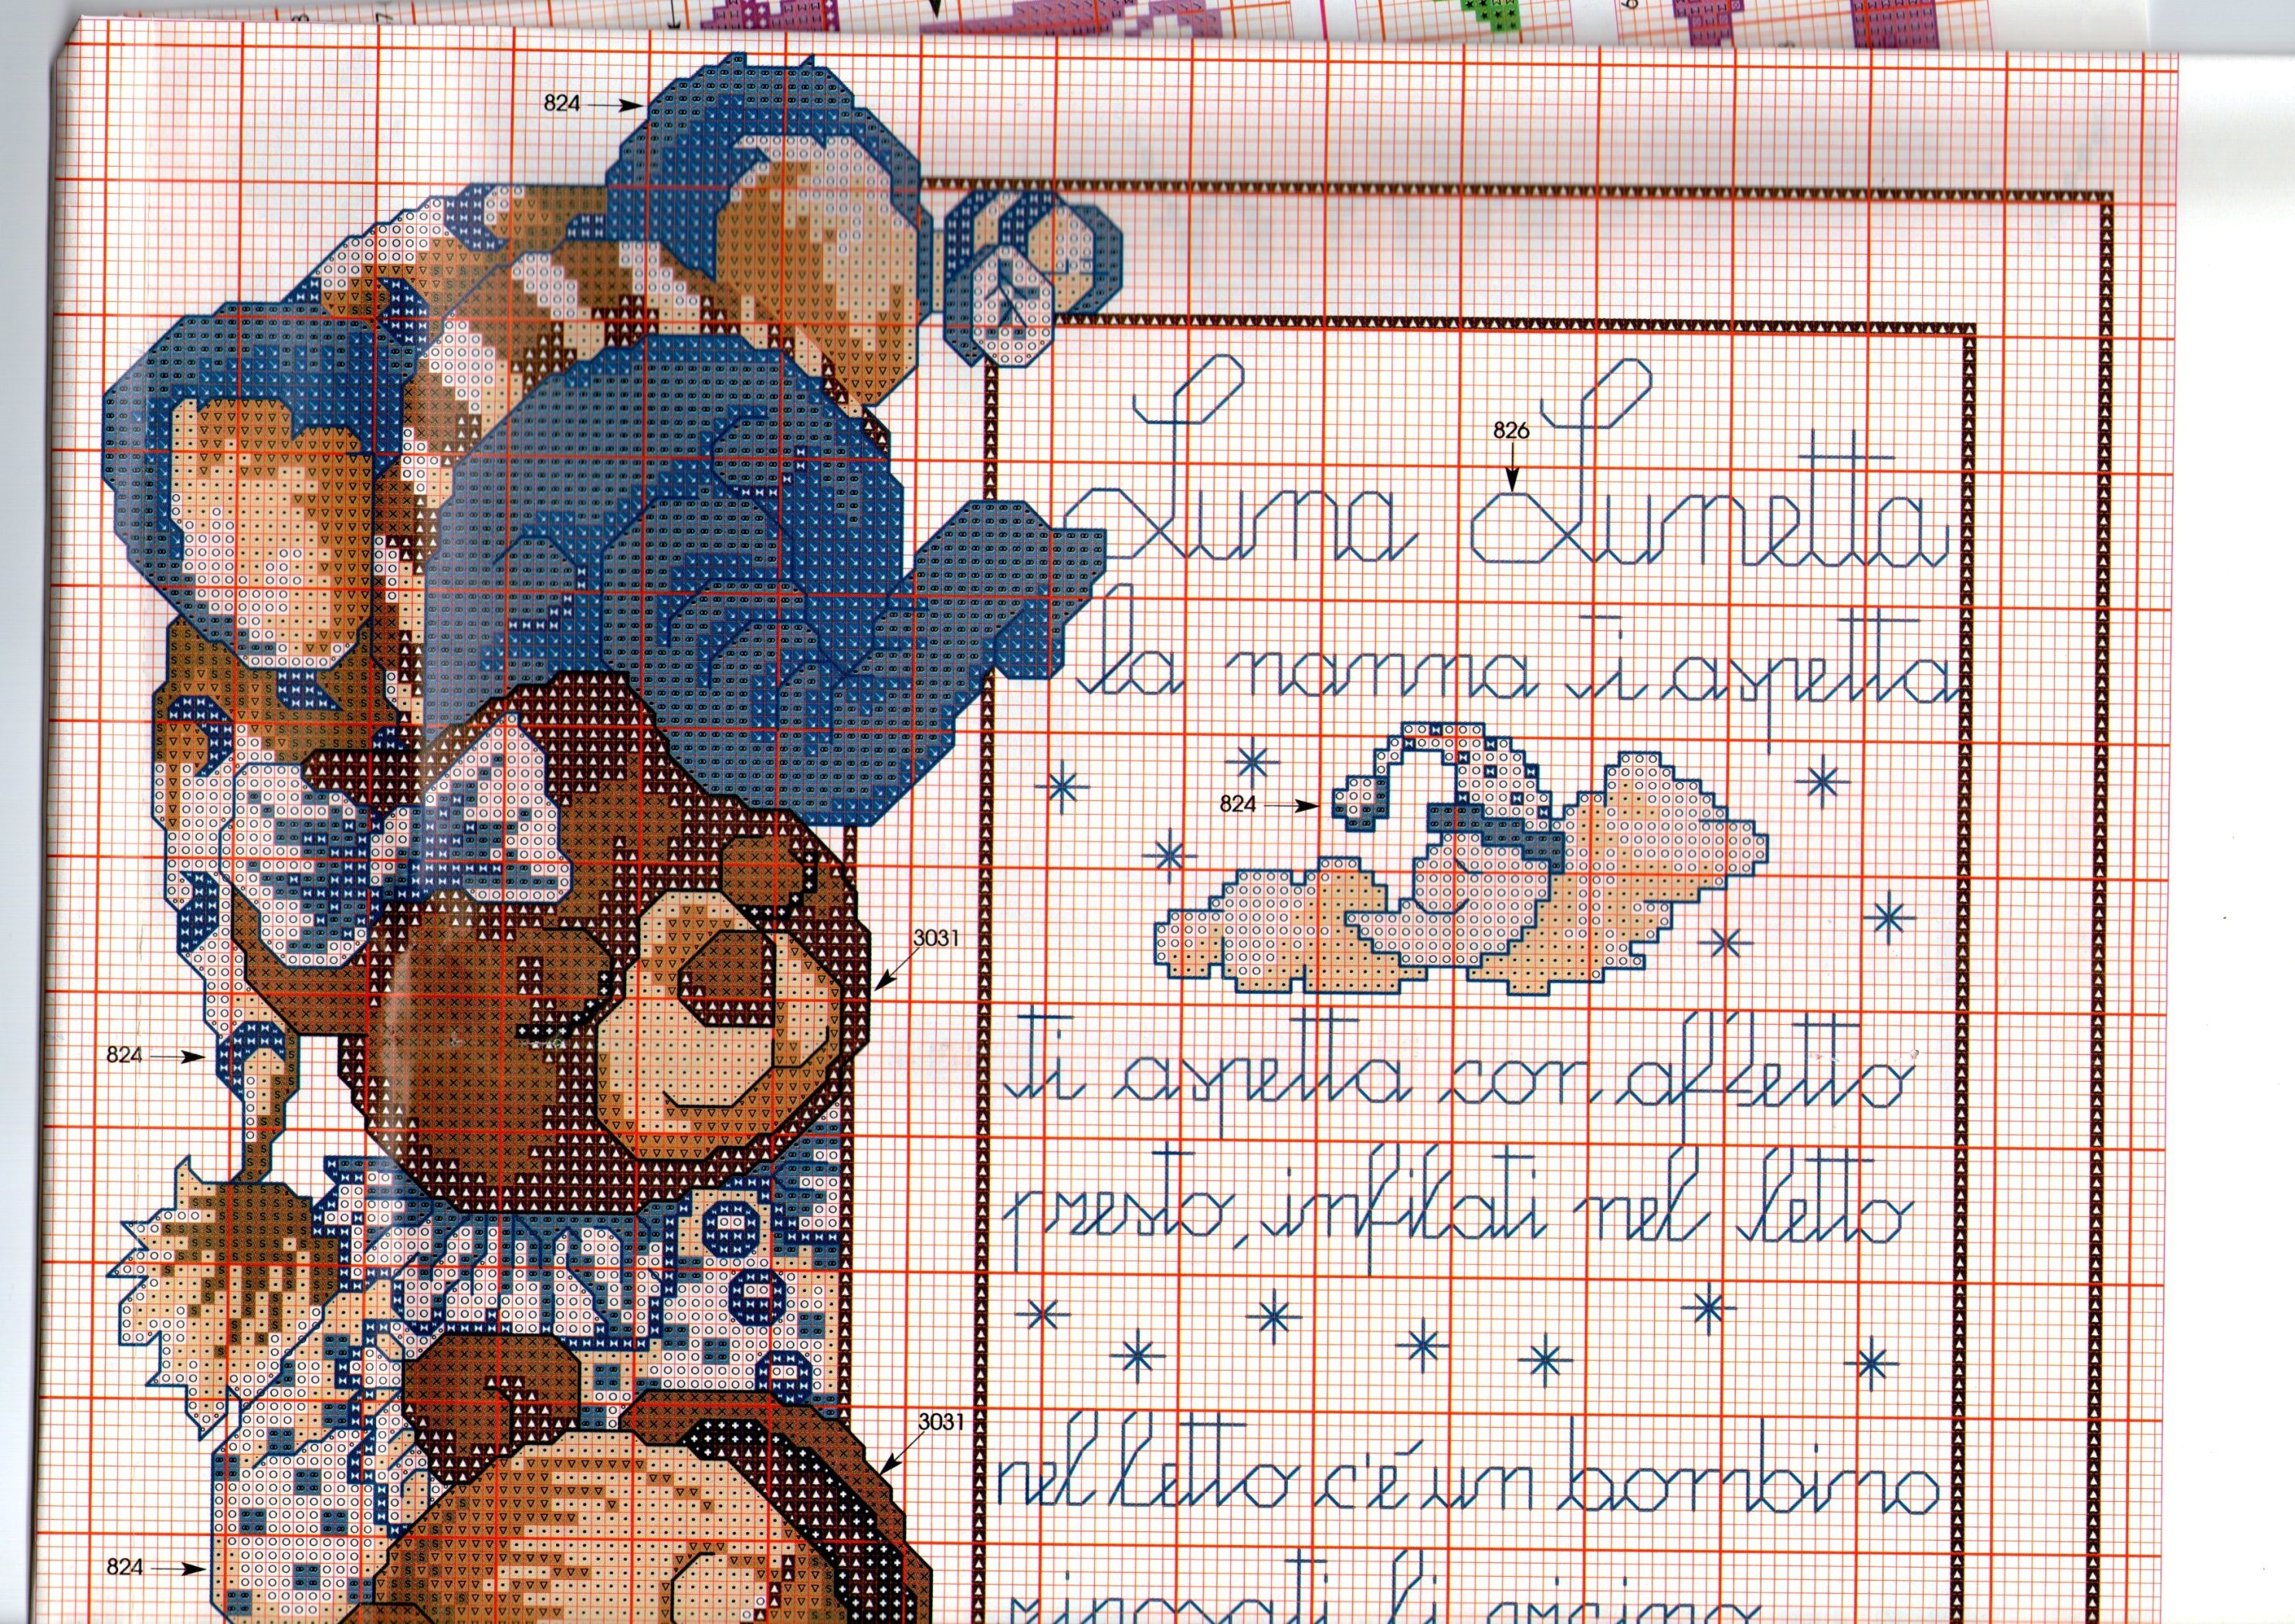 824
Luna Lunetta
826
la nanna ti aspetta
824
3031
824
ti aspetta con affetto
presto, infilati nel letto
3031
nel letto c'é un bambino
824